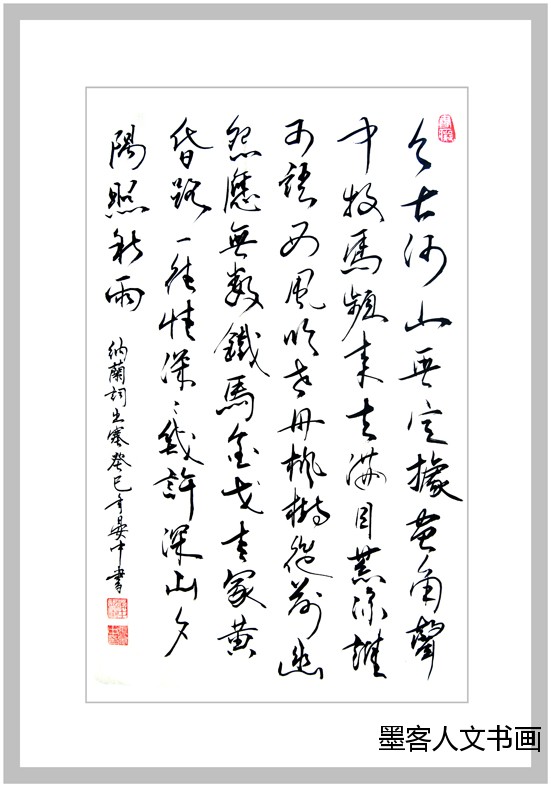 今古河山無定據畫角聲
中牧馬頻來去滿目荒涼誰
可語西風吹老丹楓樹從前幽
怨應無數鐵馬金戈青冢黄
昏路一往情深〻幾許深山夕
陽照秋雨
納蘭詞出塞癸巳年晏中書
墨客人文书画